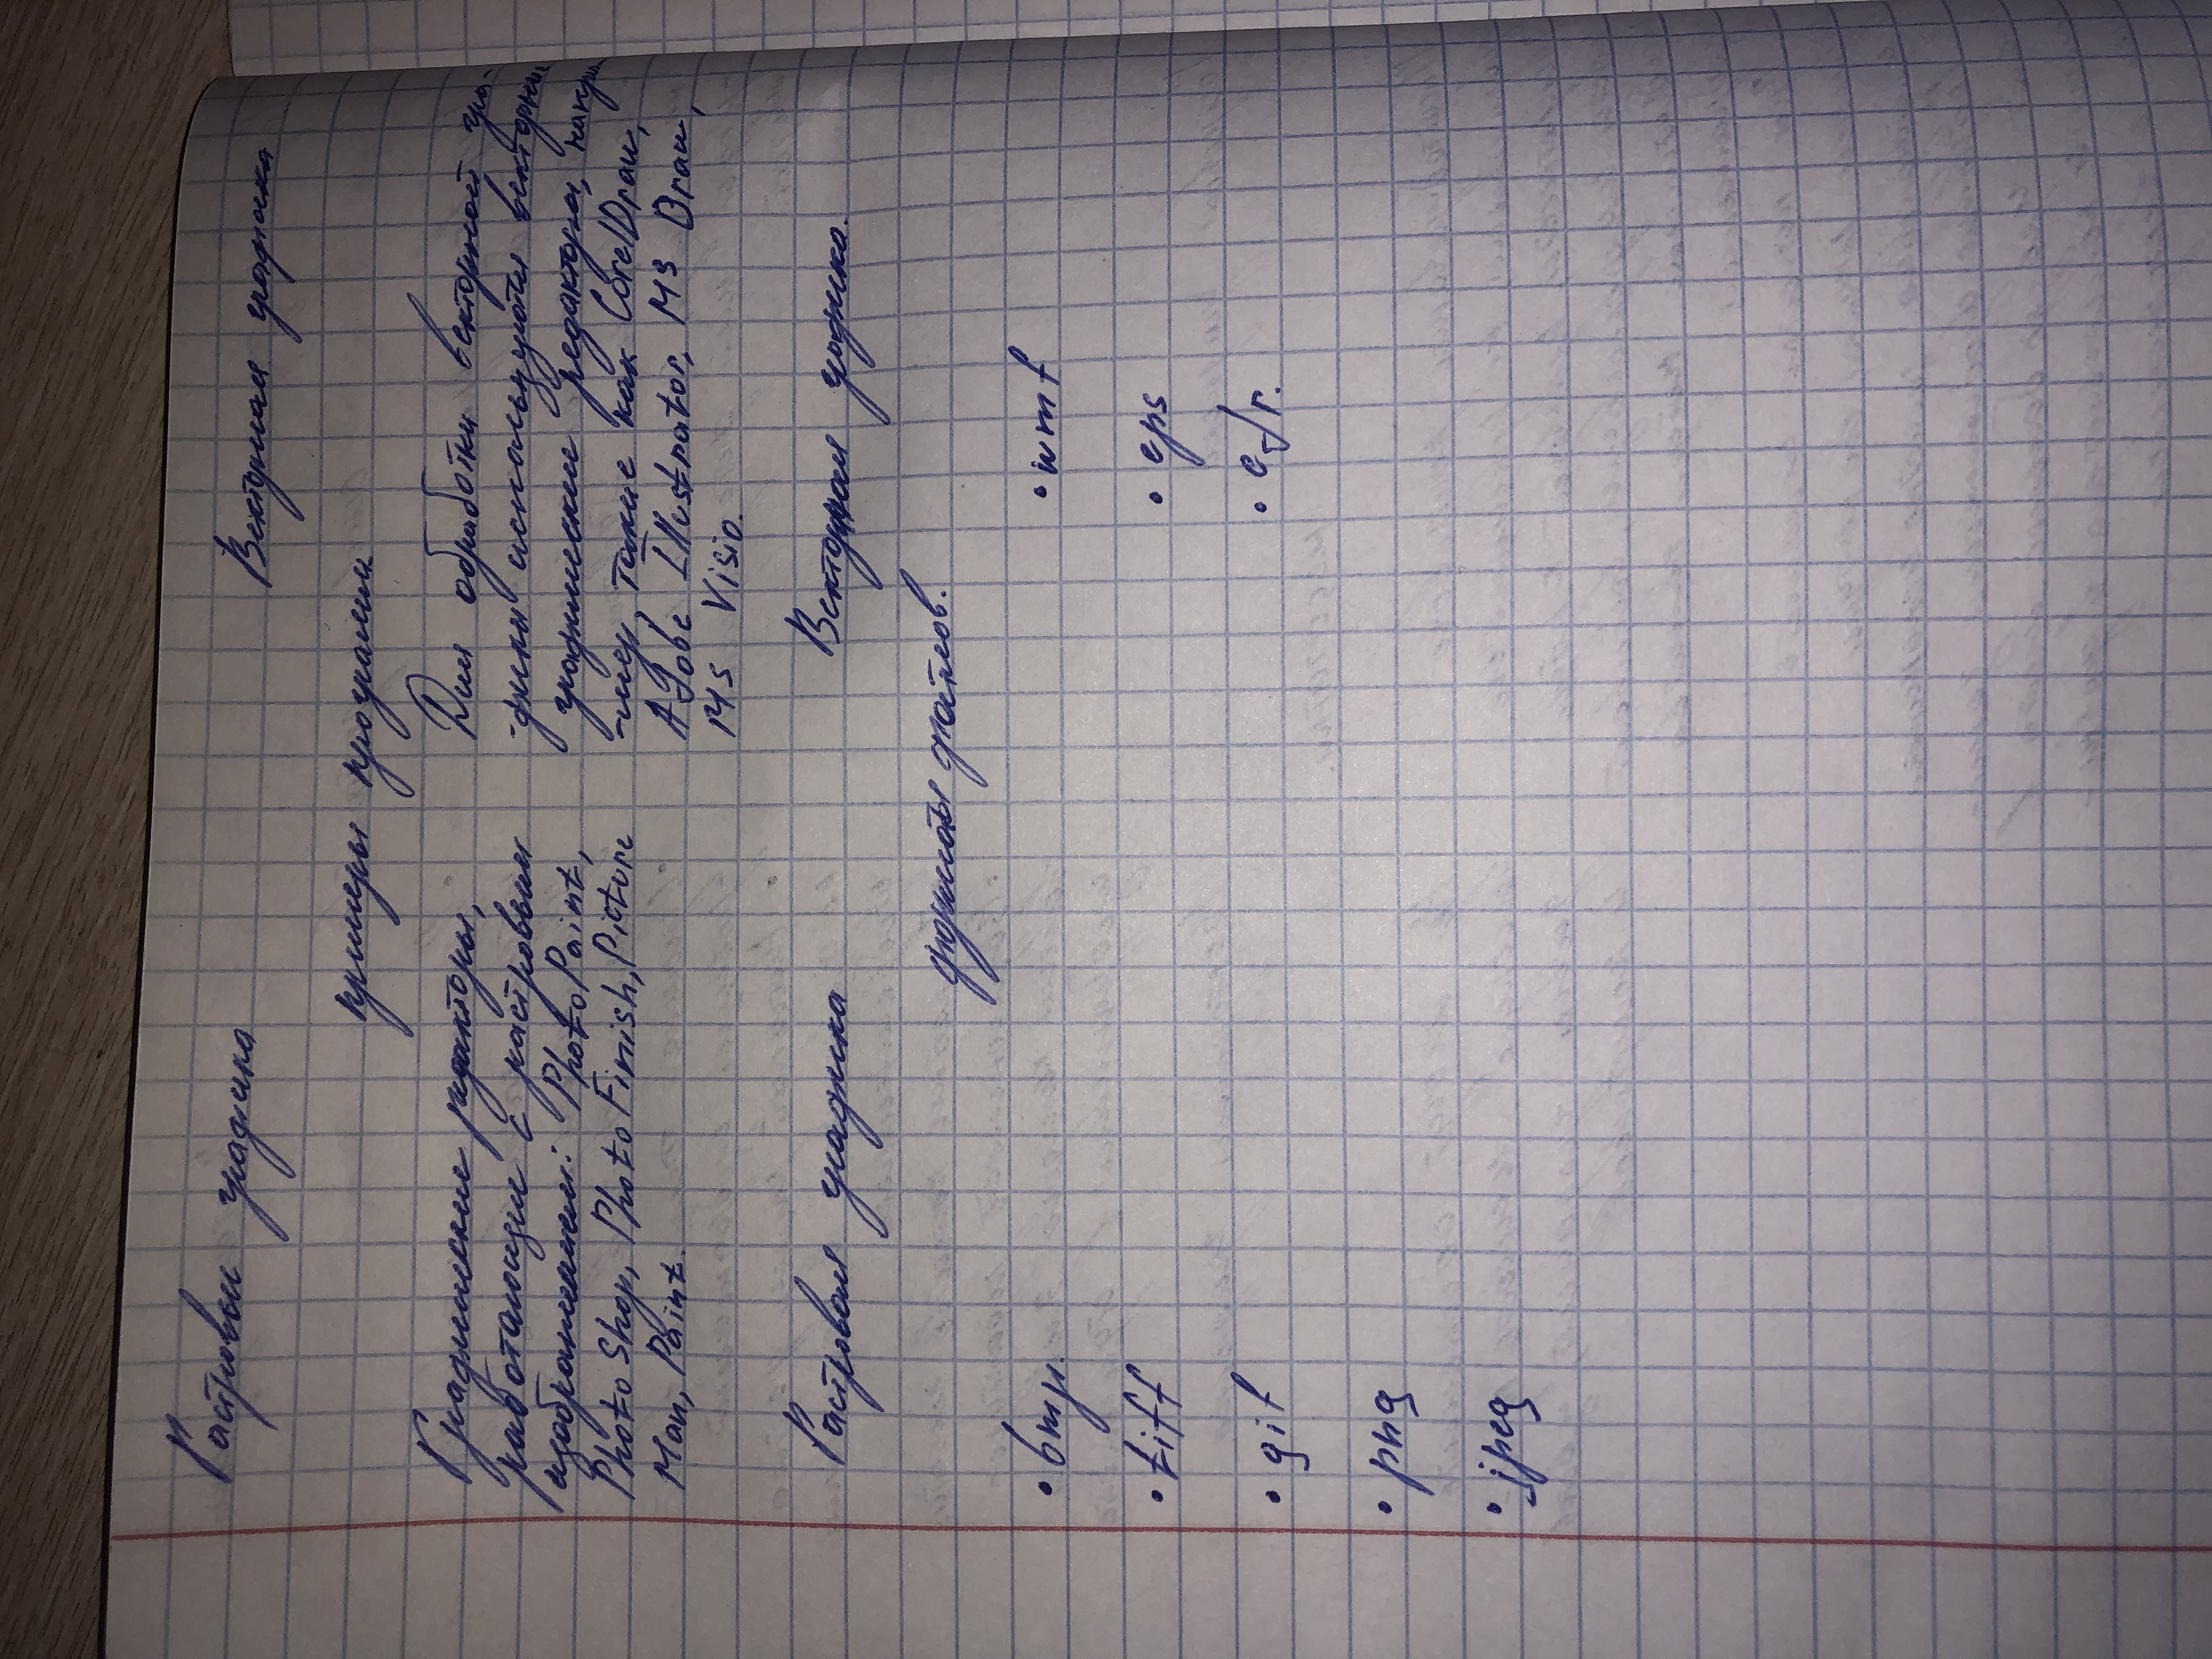 Растровая графика Векторная графика
примеры программ
Графические редакторы,
работающие с растровым
изображением: PhotoPaint,
PhotoShop, PhotoFinish, Picture
Man, Paint.
Для обработки векторной гра-
-фики используются векторн
графические редакторы, напри
-мер такие как CorelDraw,
Adobe Illustrator, MS Draw,
MS Visio.
Растровая графика Векторная графика.
форматы файлов.
• bmp • wmf
• tiff • eps
• gif
• png
• jpeg